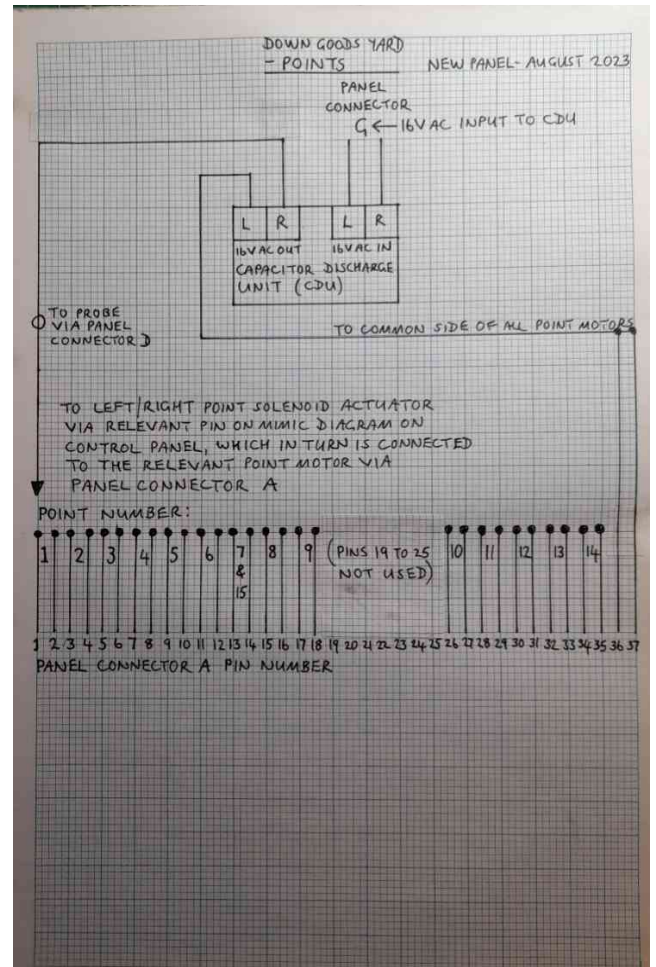 DOWN GOODS YARD
- POINTS
NEW PANEL - AUGUST 2023
PANEL
CONNECTOR
G ← 16V AC INPUT TO CDU
L R L R
16V AC OUT 16V AC IN
CAPACITOR DISCHARGE
UNIT (CDU)
TO PROBE
VIA PANEL
CONNECTOR D
TO COMMON SIDE OF ALL POINT MOTORS
TO LEFT/RIGHT POINT SOLENOID ACTUATOR
VIA RELEVANT PIN ON MIMIC DIAGRAM ON
CONTROL PANEL, WHICH IN TURN IS CONNECTED
TO THE RELEVANT POINT MOTOR VIA
PANEL CONNECTOR A
POINT NUMBER:
1 2 3 4 5 6 7 & 15 8 9 (PINS 19 TO 25 NOT USED) 10 11 12 13 14
1 2 3 4 5 6 7 8 9 10 11 12 13 14 15 16 17 18 19 20 21 22 23 24 25 26 27 28 29 30 31 32 33 34 35 36 37
PANEL CONNECTOR A PIN NUMBER